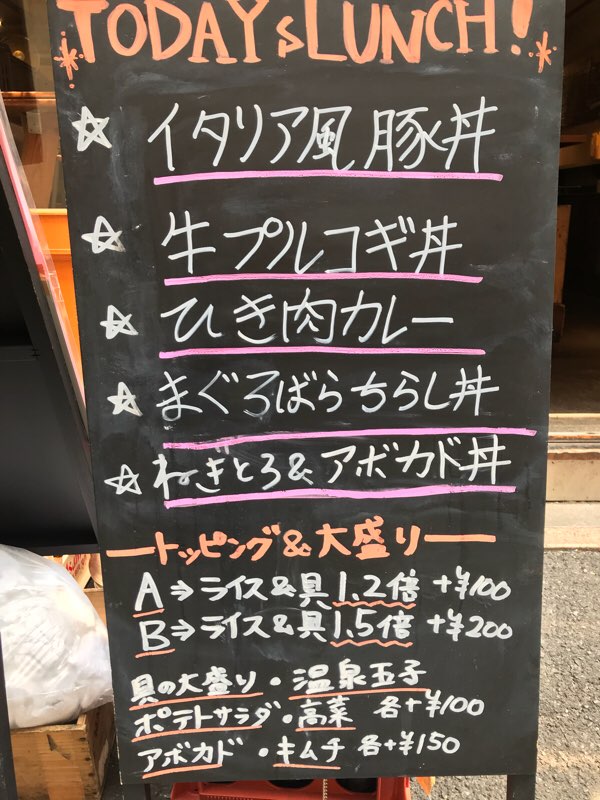 TODAY's LUNCH!
☆ イタリア風豚丼
☆ 牛プルコギ丼
☆ ひき肉カレー
☆ まぐろばらちらし丼
☆ ねぎとろ&アボカド丼
トッピング&大盛り
A⇒ライス&具1.2倍 +¥100
B⇒ライス&具1.5倍 +¥200
具の大盛り・温泉玉子
ポテトサラダ・高菜 各+¥100
アボカド・キムチ 各+¥150